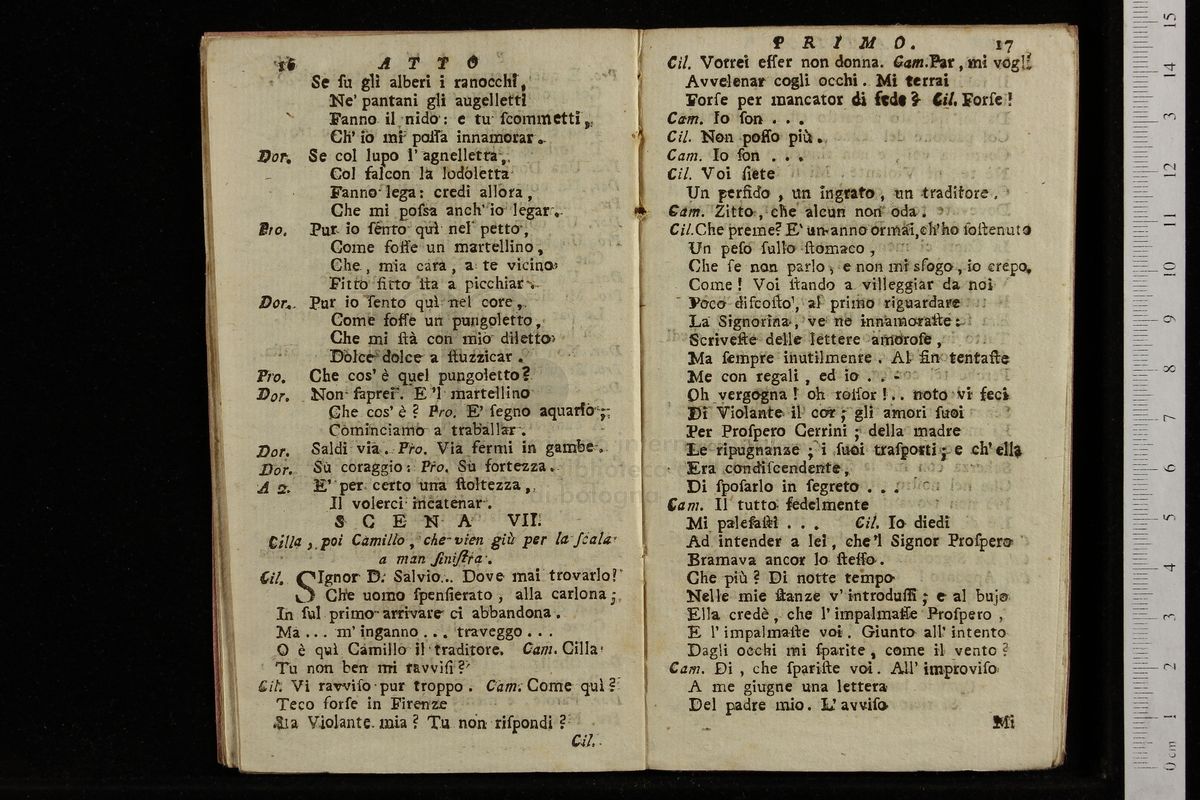 16 ATTO
Se fu gli alberi i ranocchi,
Ne' pantani gli augelletti
Fanno il nido: e tu ſcommetti,
Ch' io mi poſſa innamorar.
Dor. Se col lupo l' agnelletta,
Col falcon la lodoletta
Fanno lega: credi allora,
Che mi poſsa anch' io legar.
Pro. Pur io ſento quì nel petto,
Come foſſe un martellino,
Che, mia cara, a te vicino
Fitto fitto ſta a picchiar.
Dor. Pur io ſento quì nel core,
Come foſſe un pungoletto,
Che mi ſtà con mio diletto
Dolce dolce a ſtuzzicar.
Pro. Che cos' è quel pungoletto?
Dor. Non ſaprei. E 'l martellino
Che cos' è? Pro. E' ſegno aquario;
Cominciamo a traballar.
Dor. Saldi via. Pro. Via fermi in gambe.
Dor. Sù coraggio: Pro. Sù fortezza.
A 2. E' per certo una ſtoltezza,
Il volerci incatenar.
SCENA VII.
Cilla, poi Camillo, che vien giù per la ſcala
a man ſiniſtra.
Cil. SIgnor D. Salvio... Dove mai trovarlo?
Che uomo ſpenſierato, alla carlona;
In ſul primo arrivare ci abbandona.
Ma... m' inganno... traveggo...
O è quì Camillo il traditore. Cam. Cilla
Tu non ben mi ravviſi?
Cil. Vi ravviſo pur troppo. Cam. Come quì?
Teco forſe in Firenze
Sta Violante mia? Tu non riſpondi?
Cil.
PRIMO. 17
Cil. Vorrei eſſer non donna. Cam. Par, mi vogli
Avvelenar cogli occhi. Mi terrai
Forſe per mancator di fede? Cil. Forſe!
Cam. Io ſon...
Cil. Non poſſo più.
Cam. Io ſon...
Cil. Voi ſiete
Un perfido, un ingrato, un traditore.
Cam. Zitto, che alcun non oda.
Cil. Che preme? E' un anno ormai, ch' ho ſoſtenuto
Un peſo ſullo ſtomaco,
Che ſe non parlo, e non mi sfogo, io crepo.
Come! Voi ſtando a villeggiar da noi
Poco diſcoſto, al primo riguardare
La Signorina, ve ne innamoraſte:
Scriveſte delle lettere amoroſe,
Ma ſempre inutilmente. Al fin tentaſte
Me con regali, ed io...
Oh vergogna! oh roſſor!.. noto vi feci
Di Violante il cor; gli amori ſuoi
Per Proſpero Cerrini; della madre
Le ripugnanze; i ſuoi traſporti; e ch' ella
Era condiſcendente,
Di ſpoſarlo in ſegreto...
Cam. Il tutto fedelmente
Mi paleſaſti... Cil. Io diedi
Ad intender a lei, che 'l Signor Proſpero
Bramava ancor lo ſteſſo.
Che più? Di notte tempo
Nelle mie ſtanze v' introduſſi; e al bujo
Ella credè, che l' impalmaſſe Proſpero,
E l' impalmaſte voi. Giunto all' intento
Dagli occhi mi ſparite, come il vento?
Cam. Di, che ſpariſte voi. All' improviſo
A me giugne una lettera
Del padre mio. L' avviſo
Mi